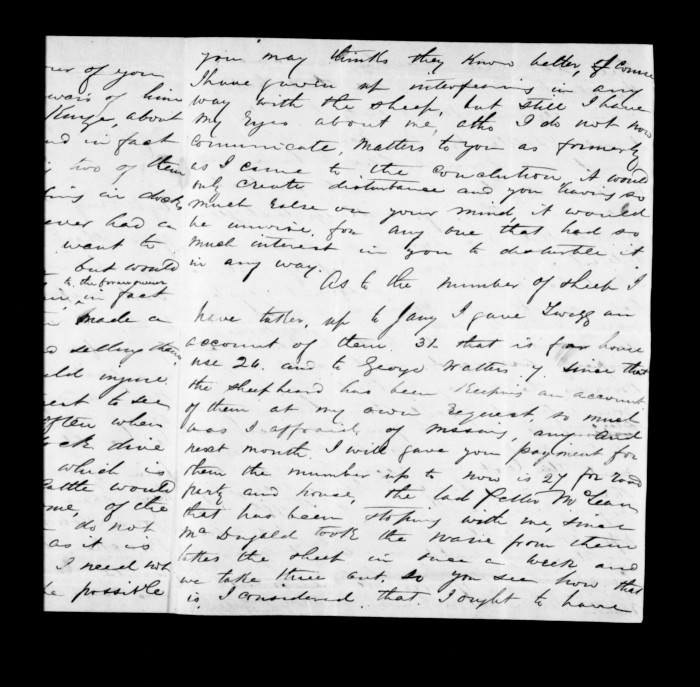 ner of you
wais of him
Kenze, about
nd in fact
two of them
ing in dock
ever had a
want to
but would
to the former owner
in fact
made a
selling them
uld injure
est to see
often when
ock dive
which is
Cattle would
me, of the
do not
as it is
I need not
be possible
you may thinks they know better, of course
I have given up interfering in any
way with the sheep, but still I have
my Eyes about me, altho I do not now
communicate, matters to you as formerly
as I came to the conclution, it would
only create disturbance and you having so
much Ealse on your mind, it would
be unwise, for any one that had so
much interest in you to disturble it
in any way.
As to the number of sheep I
have taken, up to Jany I gave Twigg an
account of them. 32 that is for house
use 26. and to George Walters 7 since that
the sheepheard has been Keeping an account
of them at my own Request, so much
was I affraid of missing, any and
next month. I will gave you payment for
them the number up to now is 27 for road
party and house, the lad Petter McLean
that has been stoping with me, since
McDugald took the Marie from them
takes the sheep in once a week and
we take three out. so you see how that
is, I considered that I ought to have